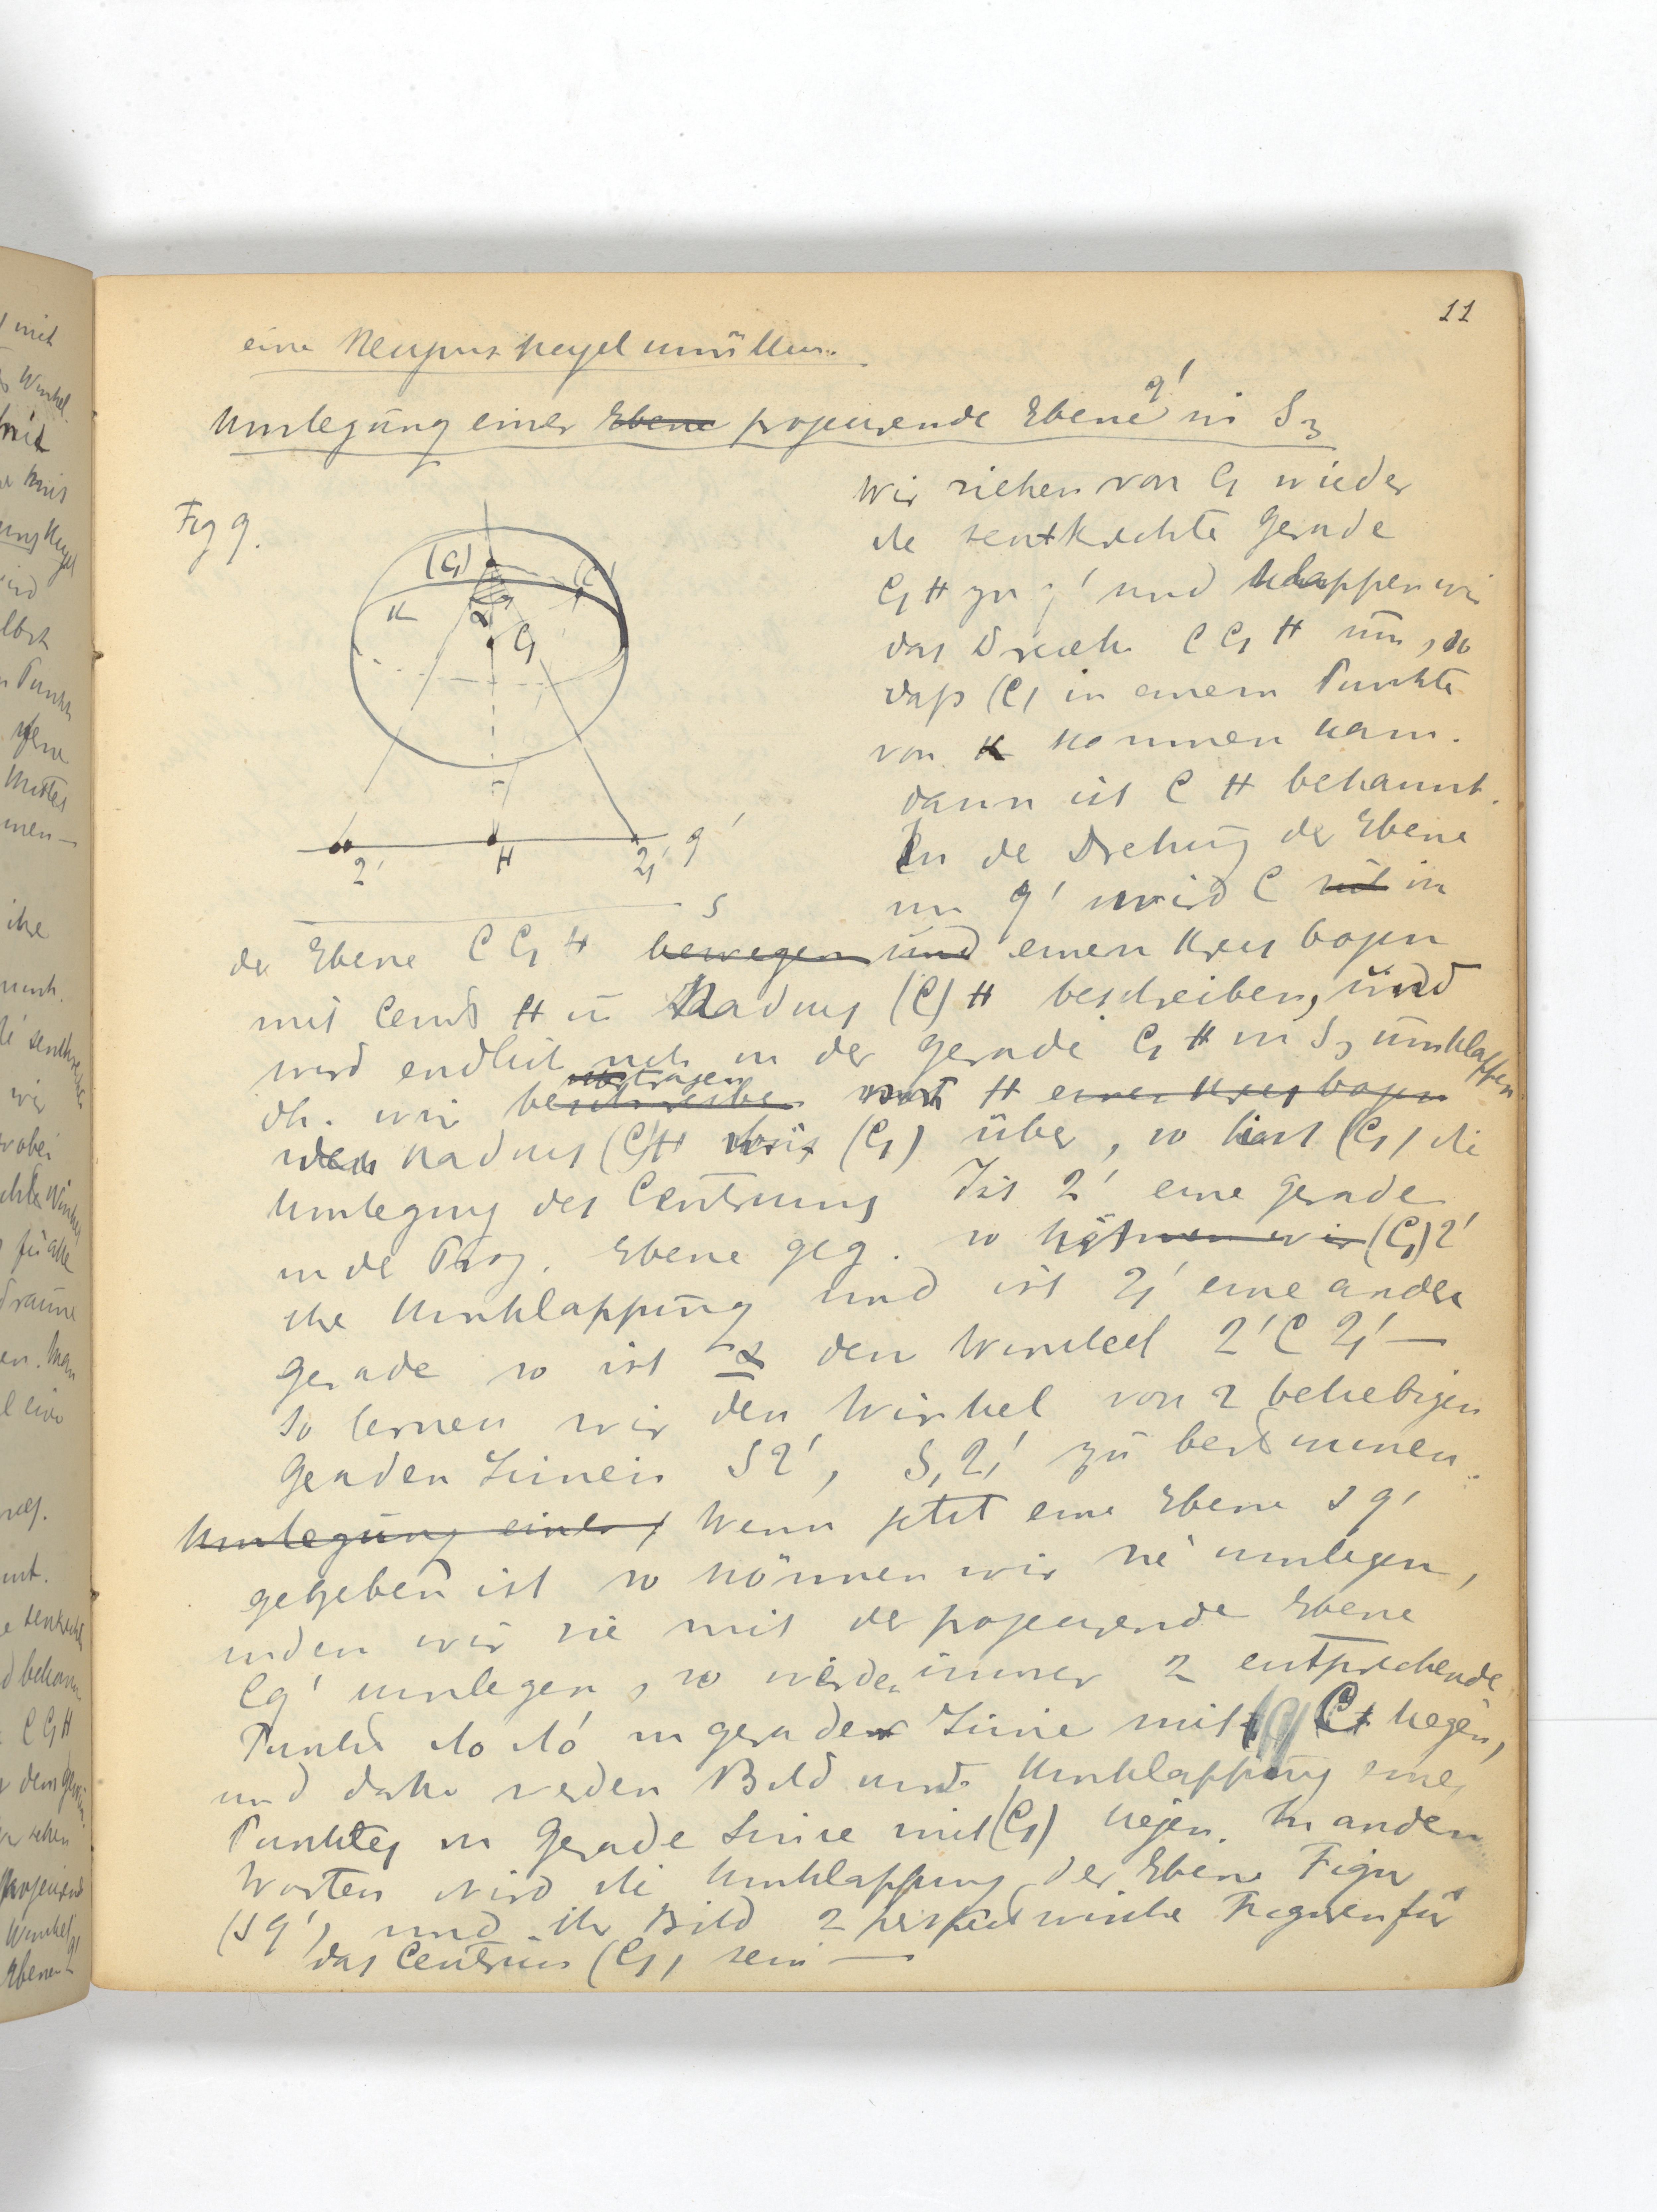 11
eine Neigungskegel umüllen.
Umlegung einer Ebene projicirende Ebene g' in S3
Fig 9.
(C1) (C)
K
α
C1
2' H 2,' g'
S
Wir ziehen von C1 wieder
die senkrechte Gerade
C1 H zu g' und klappen wir
das Dreieck C C1 H um, so
daß (C) in einem Punkte
von K kommen kann.
dann ist C H bekannt.
In de Drehung der Ebene
um g' wird C in
der Ebene C C1 H bewegen und einen Kreisbogen
mit Centr H u Radius (C) H beschreiben, und
wird endlich in der Gerade C1 H in S3 umklappen
dh. wir beschreiben übertragen von H einen Kreisbogen
den Radius (C)H bis (C1) über, so ist (C1) die
Umlegung des Centrums Ist 2' eine Gerade
in de Proj. Ebene geg. so ist (C1)2'
ihre Umklappung und ist 2,' eine andere
Gerade so ist α den Winkel 2' C 2,' —
So lernen wir den Winkel von 2 beliebigen
Geraden Linien S2', S,2,' zu bestimmen.
Umlegung einer Wenn jetzt eine Ebene s g'
gegeben ist so können wir sie umlegen,
indem wir sie mit der projicirende Ebene
Cg' umlegen, so werden immer 2 entsprechende
Punkte in gerader Linie mit C liegen,
und daher werden Bild und Umklappung eines
Punktes in Gerade Linie mit (C1) liegen. In anden
Worten wird die Umklappung der Ebene Figur
(s g') und ihr Bild 2 perspectivische Figuren für
das Centrum (C1) sein —